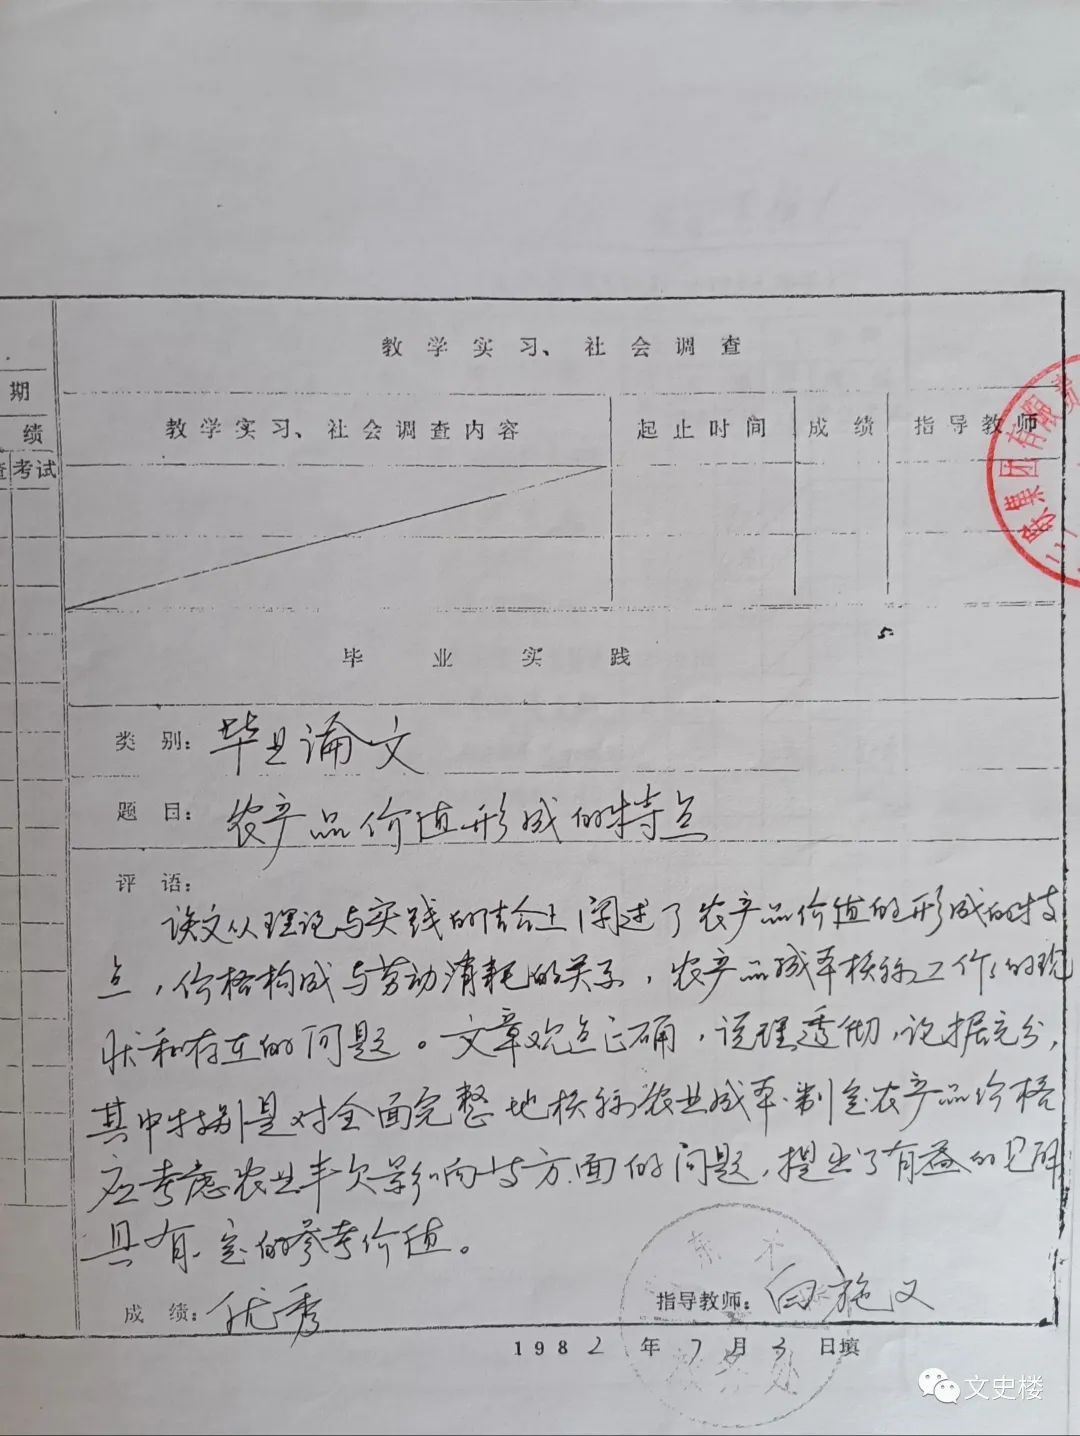 教学实习、社会调查
期
绩
查考试
教学实习、社会调查内容
起止时间
成绩
指导教师
集团有限
毕业实践
类别：毕业论文
题目：农产品价值形成的特点
评语：
该文从理论与实践的结合上阐述了农产品价值的形成的特
点，价格构成与劳动消耗的关系，农产品成本核算工作的现
状和存在的问题。文章观点正确，说理透彻，论据充分，
其中特别是对全面完整地核算农业成本、制定农产品价格
应考虑农业丰欠影响等方面的问题，提出了有益的见解
具有一定的参考价值。
成绩：优秀
指导教师：白施义
1982年7月3日填
文史楼